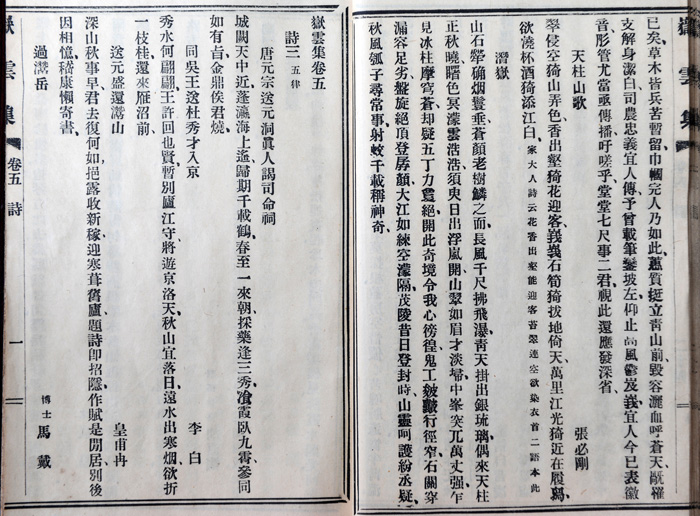 已矣草木皆兵苦暫留巾幗完人乃如此蕙質挺立青山前毀容灑血呼蒼天㪣摧
支解身潔白司農忠義宜人傳予曾載筆鑾坡左仰止高風鬱岌義宜人今已表徽
音彤管尤當亟傳播吁嗟乎堂堂七尺事二君視此還應發深省
天柱山歌 張必剛
翠侵空猗山弄色香出壑猗花迎客峩峩石筍猗拔地倚天萬里江光猗近在履舄
欲澆杯酒猗添江白 家大人詩云花香出壑能迎客苔翠連空欲染衣首二語本此
潛嶽
山石犖确烟鬟垂蒼顏老樹鱗之而長風千尺拂飛瀑青天掛出銀琉璃偶來天柱
正秋曉曙色冥濛雲浩浩須臾日出浮嵐開山翠如眉才淡埽中峯突兀萬丈强乍
見冰柱摩穹蒼却疑五丁力鑿絕開此奇境令我心徬徨鬼工皴皺行徑窄石關穿
漏容足劣盤旋絕頂登孱顏大江如練空濛隔茂陵昔日登封時山靈呵護紛丞疑
秋風瓠子尋常事射蛟千載稱神奇
嶽雲集卷五
詩三 五律
唐元宗送元洞眞人謁司命祠
城闕天中近蓬瀛海上遙歸期千載鶴春至一來朝採藥逢三秀飡霞臥九霄參同
如有旨金鼎俟君燒
同吳王送杜秀才入京 李白
秀水何翩翩王許回也賢暫別廬江守將遊京洛天秋山宜落日遠水出寒烟欲折
一枝桂還來雁沼前
送元盛還灊山 皇甫冉
深山秋事早君去復何如挹露收新稼迎寒葺舊廬題詩卽招隱作賦是閒居別後
因相憶嵇康懶寄書
過灊岳 博士 馬戴
嶽雲集 卷五 詩 一